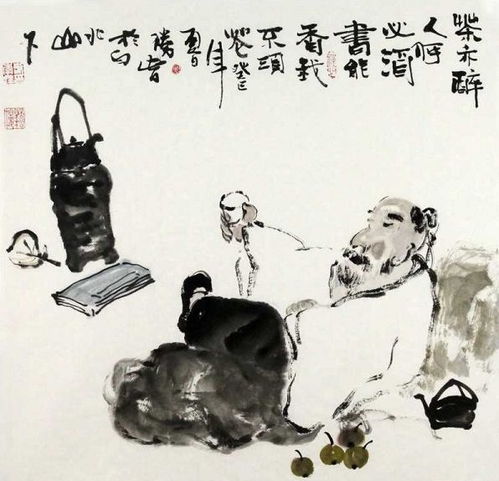 茶亦醉
人何
必酒
書能
香我
不須
花癸巳
年
夏日
於
山
下